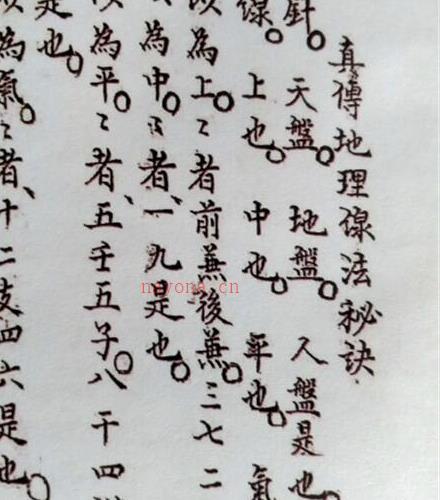 真傳地理線法秘訣
針。天盤。地盤。人盤是也
線。上也。中也。平也。氣
以為上。〻者前兼後兼。三七二
為中。〻者、一九是也。
以為平。〻者、五壬五子。八干四
是也。
以為氣。〻者、十二支四六是也。
nayona.cn